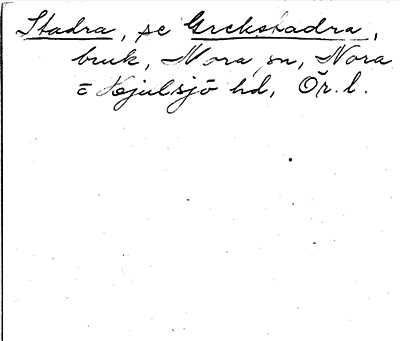 Stadra, se Grekstadra,
bruk, Nora sn, Nora
o Hjulsjö hd, Ör. l.